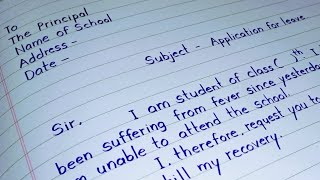 To
The Principal
Name of School
Address -
Date -
Subject - Application for leave
Sir.
I am student of class( )th I
been suffering from fever since yesterday
am unable to attend the school
I. therefore. request you to
till my recovery.